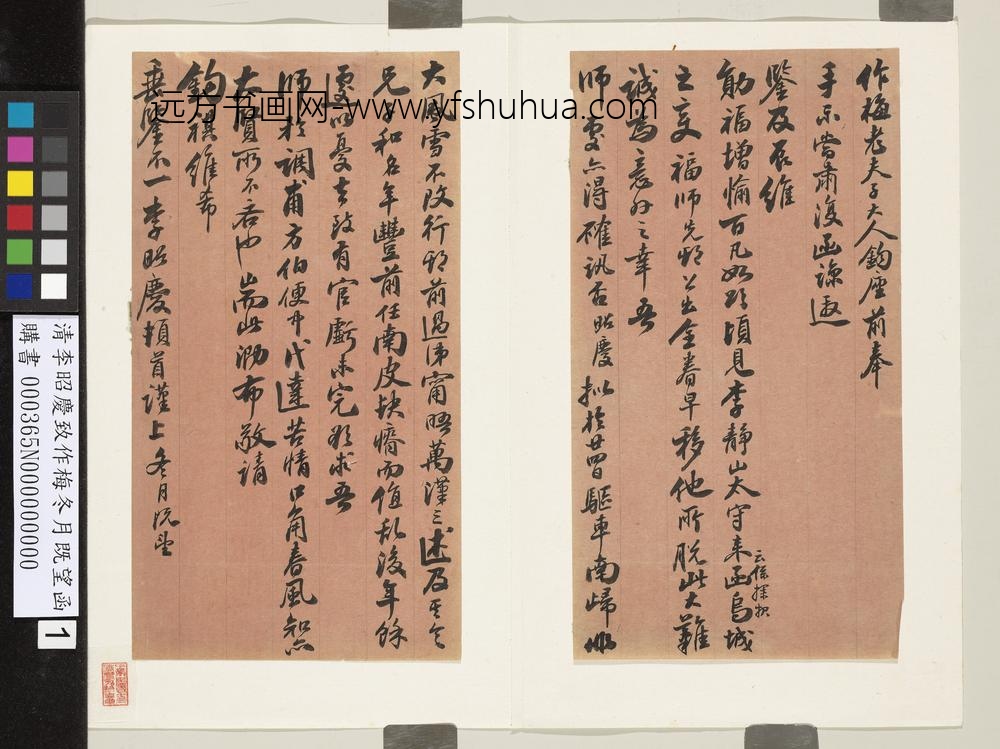 作梅老夫子大人鈞座前奉
手示當肅復函諒邀
鑒及辰維
勛福增愉百凡如頌頃見李靜山太守來函烏城
云係探報
之變福師先期公出全眷早移他所脫此大難
誠為意外之幸吾
師處亦得確訊否昭慶擬於廿四日驅車南歸
大風雪不改行期前過保甯晤萬漢三述及其令
兄子和名年豐前任南皮缺瘠而值亂後年餘
虞以憂去致有官虧未完欲求吾
師於調甫方伯便中代達苦情口角春風知亦
大賢所不吝也耑此泐布敬請
鈞祺維希
垂鑒不一李昭慶頓首謹上冬月既望
远方书画网-www.yfshuhua.com
清李昭慶致作梅冬月既望函
購書 000365N000000000
1